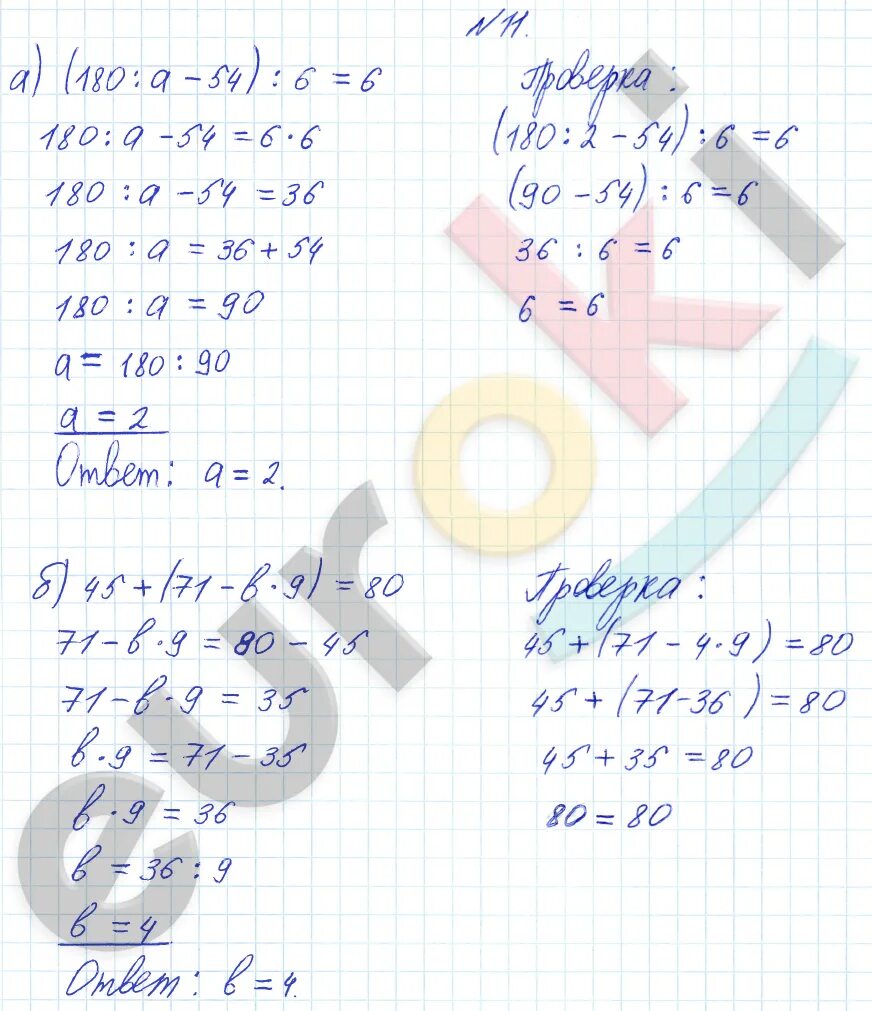 № 11.
а) (180 : а − 54) : 6 = 6
180 : а − 54 = 6 · 6
180 : а − 54 = 36
180 : а = 36 + 54
180 : а = 90
а = 180 : 90
а = 2
Ответ: а = 2.
Проверка:
(180 : 2 − 54) : 6 = 6
(90 − 54) : 6 = 6
36 : 6 = 6
6 = 6
б) 45 + (71 − в · 9) = 80
71 − в · 9 = 80 − 45
71 − в · 9 = 35
в · 9 = 71 − 35
в · 9 = 36
в = 36 : 9
в = 4
Ответ: в = 4.
Проверка:
45 + (71 − 4 · 9) = 80
45 + (71 − 36) = 80
45 + 35 = 80
80 = 80
euroki